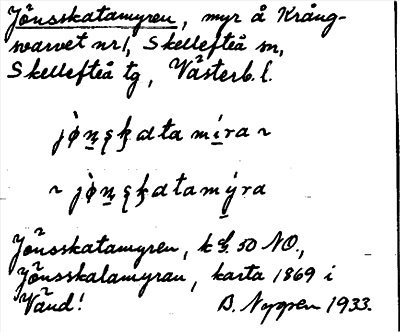 Jönsskatamyren, myr å Krång-
varvet nr 1, Skellefteå sn,
Skellefteå tg, Västerb. l.
jö̀nskata míra ~
~ jö̀nskatamýra
Jönsskatamyren, k bl. 50 NO.,
Jönsskalamyran, karta 1869 i
Vänd! B. Nygren 1933.